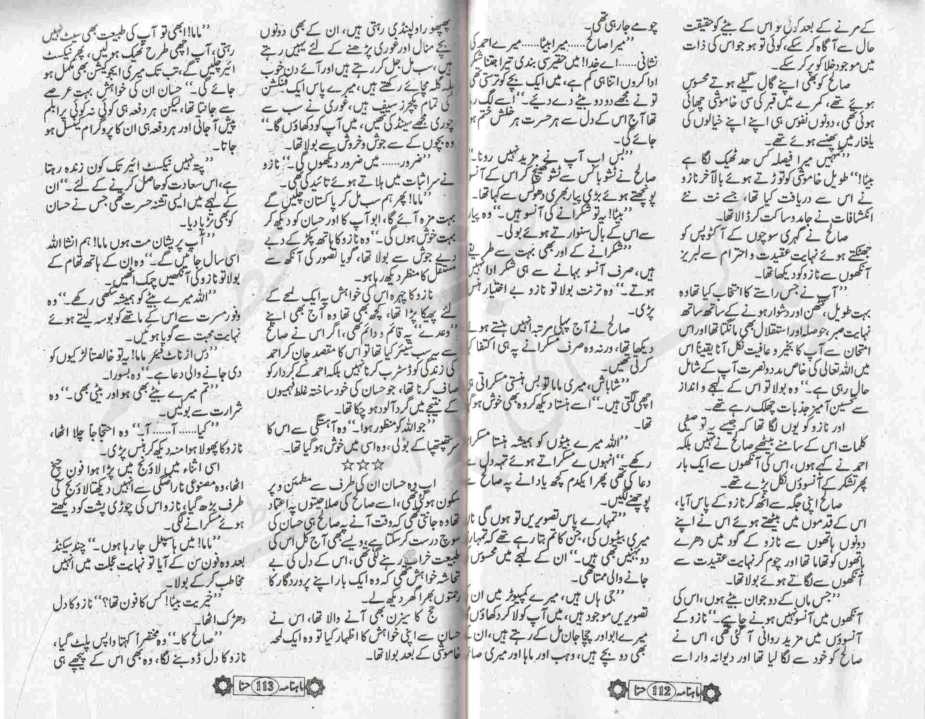 کے مرنے کے بعد کوئی تو اس کے بیٹے کو حقیقت
حال سے آگاہ کر سکے، کوئی تو ہو جو اس کی ذات
میں موجود خلا کو پر کر سکے۔
صالح کو بھی اپنے گال گیلے ہوتے محسوس
ہوئے تھے، کمرے میں قبر کی سی خاموشی چھائی
ہوئی تھی، دونوں نفوس ہی اپنے اپنے خیالوں کی
یلغار میں پھنسے ہوئے تھے۔
”تمہیں میرا فیصلہ کس حد ٹھیک لگا ہے
بیٹا!“ طویل خاموشی کو توڑتے ہوئے بالآخر نازو
نے اس سے دریافت کیا تھا، جسے نت نئے
انکشافات نے جامد و ساکت کر ڈالا تھا۔
صالح نے گہری سوچوں کے آکٹوپس کو
جھٹکتے ہوئے نہایت عقیدت و احترام سے لبریز
آنکھوں سے نازو کو دیکھا تھا۔
”آپ نے جس راستے کا انتخاب کیا تھا وہ
بہت طویل، کٹھن اور دشوار ہونے کے ساتھ ساتھ
نہایت صبر، حوصلہ اور استقلال بھی مانگتا تھا اور اس
امتحان سے آپ کا بخیر و عافیت نکل آنا یقیناً اس
میں اللہ تعالیٰ کی خاص مدد و نصرت آپ کے شامل
حال رہی ہے۔“ وہ بولا تو اس کے لہجے و انداز
سے تحسین آمیز جذبات چھلک رہے تھے۔
اور نازو کو یوں لگا تھا کہ جیسے یہ توصیفی
کلمات اس کے سامنے بیٹھے صالح نے نہیں بلکہ
احمد نے کہے ہوں، اس کی آنکھوں سے ایک بار
پھر تشکر کے آنسوؤں نکل پڑے تھے۔
صالح اپنی جگہ سے اٹھ کر نازو کے پاس آیا،
اس کے قدموں میں بیٹھتے ہوئے اس نے اپنے
دونوں ہاتھوں سے نازو کے گود میں دھرے
ہاتھوں کو تھاما تھا اور چوم کر نہایت عقیدت سے
آنکھوں سے لگاتے ہوئے بولا تھا۔
”جس ماں کے دو جوان بیٹے ہوں، اس کی
آنکھوں میں آنسو نہیں ہونے چاہیے۔“ نازو کے
آنسوؤں میں مزید روانی آ گئی تھی، اس نے
صالح کو خود سے لگا لیا تھا اور دیوانہ وار اسے
چومے جا رہی تھی۔
”میرا صالح...... میرا بیٹا...... میرے احمد کی
نشانی...... اے خدا! میں حقیر سی بندی تیرا جتنا شکر
ادا کروں اتنا ہی کم ہے، میں ایک بچے کو ترستی
تو نے مجھے دو دو بیٹے دے دیئے۔“ اسے لگ رہا
تھا آج اس کے دل سے ہر حسرت ہر خلش ختم ہو
جائے گی۔
”بس اب آپ نے مزید نہیں رونا۔“
صالح نے ٹشو باکس سے ٹشو کھینچ کر اس کے آنسو
پونچھتے ہوئے بڑی پیار بھری دھونس سے کہا تھا۔
”بیٹا! یہ تو شکرانے کی آنسو ہیں۔“ وہ پیار
سے اس کے بال سنوارتے ہوئے بولی۔
”شکرانے کے اور بھی بہت سے طریقے
ہیں، صرف آنسو بہانے سے ہی شکر ادا نہیں
ہوتے۔“ وہ ترنت بولا تو نازو بے اختیار ہنس
پڑی۔
صالح نے آج پہلی مرتبہ انہیں ہنستے ہوئے
دیکھا تھا، ورنہ وہ صرف مسکرانے پہ ہی اکتفا کیا
کرتی تھیں۔
”شاباش، میری ماما تو بس ہنستی مسکراتی ہی
اچھی لگتی ہیں۔“ اسے ہنستا دیکھ کر وہ بھی خوش ہو گیا
تھا۔
”اللہ میرے بیٹوں کو ہمیشہ ہنستا مسکراتا
رکھے۔“ انہوں نے مسکراتے ہوئے تہہ دل سے
دعا کی تھی پھر ایکدم کچھ یاد آنے پہ صالح سے
پوچھنے لگیں۔
”تمہارے پاس تصویریں تو ہوں گی ناں
میری بیٹیوں کی، جن کا تم بتا رہے تھے کہ تمہاری
دو بہنیں بھی ہیں۔“ ان کے لہجے میں محسوس کی
جانے والی ممتا تھی۔
”جی ہاں ہیں، میرے کمپیوٹر میں ان کی
تصویریں موجود ہیں، میں آپ کو لا کر دکھاؤں گا،
میرے ابو اور چچا جان مل کے رہتے ہیں، ان کے
بھی دو بچے ہیں، وہب اور ماہا اور میری صالحہ
ماہنامہ 112 حنا
پھپھو راولپنڈی رہتی ہیں، ان کے بھی دونوں
بچے منال اور غوری پڑھنے کے لئے یہیں رہتے
ہیں، سب مل جل کر رہتے ہیں اور آئے دن خوب
ہلہ گلہ مچائے رکھتے ہیں، میرے پاس ایک فنکشن
کی تمام پکچرز سیف ہیں، غوری نے سب سے
چوری مجھے سینڈ کی تھیں، میں آپ کو دکھاؤں گا۔“
وہ بچوں کے سے جوش و خروش سے بولا تھا۔
”ضرور...... میں ضرور دیکھوں گی۔“ نازو
نے سر اثبات میں ہلاتے ہوئے تائید کی تھی۔
”ماما! پھر ہم سب مل کر پاکستان چلیں گے
بہت مزہ آئے گا، ابو آپ کا اور حسان کو دیکھ کر
بہت خوش ہوں گی۔“ وہ نازو کا ہاتھ پکڑ کے دبے
دبے جوش سے بولا تھا، گویا تصور کی آنکھ سے
مستقبل کا منظر دیکھ رہا ہو۔
نازو کا چہرہ اس کی خواہش پہ ایک لمحے کے
لئے پھیکا پڑا تھا، کچھ بھی تھا وہ آج بھی اپنے
”وعدے“ پہ قائم و دائم تھی، اگر اس نے صالح
سے یہ سب شیئر کیا تھا تو اس کا مقصد جان کر احمد
کی زندگی کو ڈسٹرب کرنا نہیں بلکہ احمد کے کردار کو
صاف کرنا تھا، جو حسان کی خود ساختہ غلط فہمیوں
کے نتیجے میں گرد آلود ہو چکا تھا۔
”جو اللہ کو منظور ہوا۔“ وہ آہستگی سے اس کا
سر تھپتھپا کے بولی، وہ اسی میں خوش ہو گیا تھا۔
☆☆☆
اب وہ حسان ان کی طرف سے مطمئن و پر
سکون ہو گئی تھی، اسے صالح کی صلاحیتوں پہ اعتماد
تھا وہ جانتی تھی کہ وقت آنے پہ صالح ہی حسان کی
سوچ درست کر سکتا ہے، ویسے بھی آج کل اس کی
طبیعت خراب رہنے لگی تھی، اس کے دل کی بے
تحاشہ خواہش تھی کہ وہ ایک بار اپنے پروردگار کا
رحمتوں بھرا گھر دیکھ لے۔
حج کا سیزن بھی آنے والا تھا، اس نے
حسان سے اپنی خواہش کا اظہار کیا تو وہ ایک لمحہ
خاموشی کے بعد بولا تھا۔
”ماما! ابھی تو آپ کی طبیعت بھی سیٹ نہیں
رہتی، آپ اچھی طرح ٹھیک ہو لیں، پھر نیکسٹ
ائیر چلیں گے، تب تک میری ایجوکیشن بھی مکمل ہو
جائے گی۔“ حسان ان کی خواہش بہت عرصے
سے جانتا تھا، لیکن ہر دفعہ ہی کوئی نہ کوئی پرابلم
پیش آ جاتی اور ہر دفعہ ہی ان کا پروگرام کینسل ہو
جاتا۔
”پتہ نہیں نیکسٹ ائیر تک کون زندہ رہتا
ہے، اس سعادت کو حاصل کرنے کے لئے۔“ ان
کے لہجے میں ایسی تشنہ حسرت تھی جس نے حسان
کو بھی تڑپا دیا۔
”آپ پریشان مت ہوں ماما! ہم انشا اللہ
اسی سال جائیں گے۔“ وہ ان کے ہاتھ تھام کے
بولا تو نازو کی آنکھیں چمک اٹھیں۔
”اللہ میرے بیٹے کو ہمیشہ سکھی رکھے۔“ وہ
وفور مسرت سے اس کے ماتھے کو بوسہ لیتے ہوئے
نہایت محبت سے گویا ہوئیں۔
”دس از ناٹ فیئر ماما! یہ تو خالصتاً لڑکیوں کو
دی جانے والی دعا ہے۔“ وہ بسورا۔
”تم میرے بیٹے بھی ہو اور بیٹی بھی۔“ وہ
شرارت سے بولیں۔
”کیا...... آ...... آ۔“ وہ احتجاجاً چلا اٹھا،
نازو کا پھولا ہوا منہ دیکھ کر ہنس پڑی۔
اسی اثناء میں لاؤنج میں پڑا ہوا فون چیخ
اٹھا، وہ مصنوعی ناراضگی سے انہیں دیکھتا لاؤنج کی
طرف بڑھ گیا، نازو اس کی چوڑی پشت کو دیکھتے
ہوئے مسکرانے لگی۔
”ماما! میں ہاسپٹل جا رہا ہوں۔“ چند سیکنڈ
بعد وہ فون سن کے آیا تو نہایت عجلت میں انہیں
مخاطب کر کے بولا۔
”خیریت بیٹا! کس کا فون تھا؟“ نازو کا دل
دھڑک اٹھا۔
”صالح کا۔“ وہ مختصراً کہتا واپس پلٹ گیا،
نازو کا دل ڈوبنے لگا، وہ بھی اس کے پیچھے ہی
ماہنامہ 113 حنا